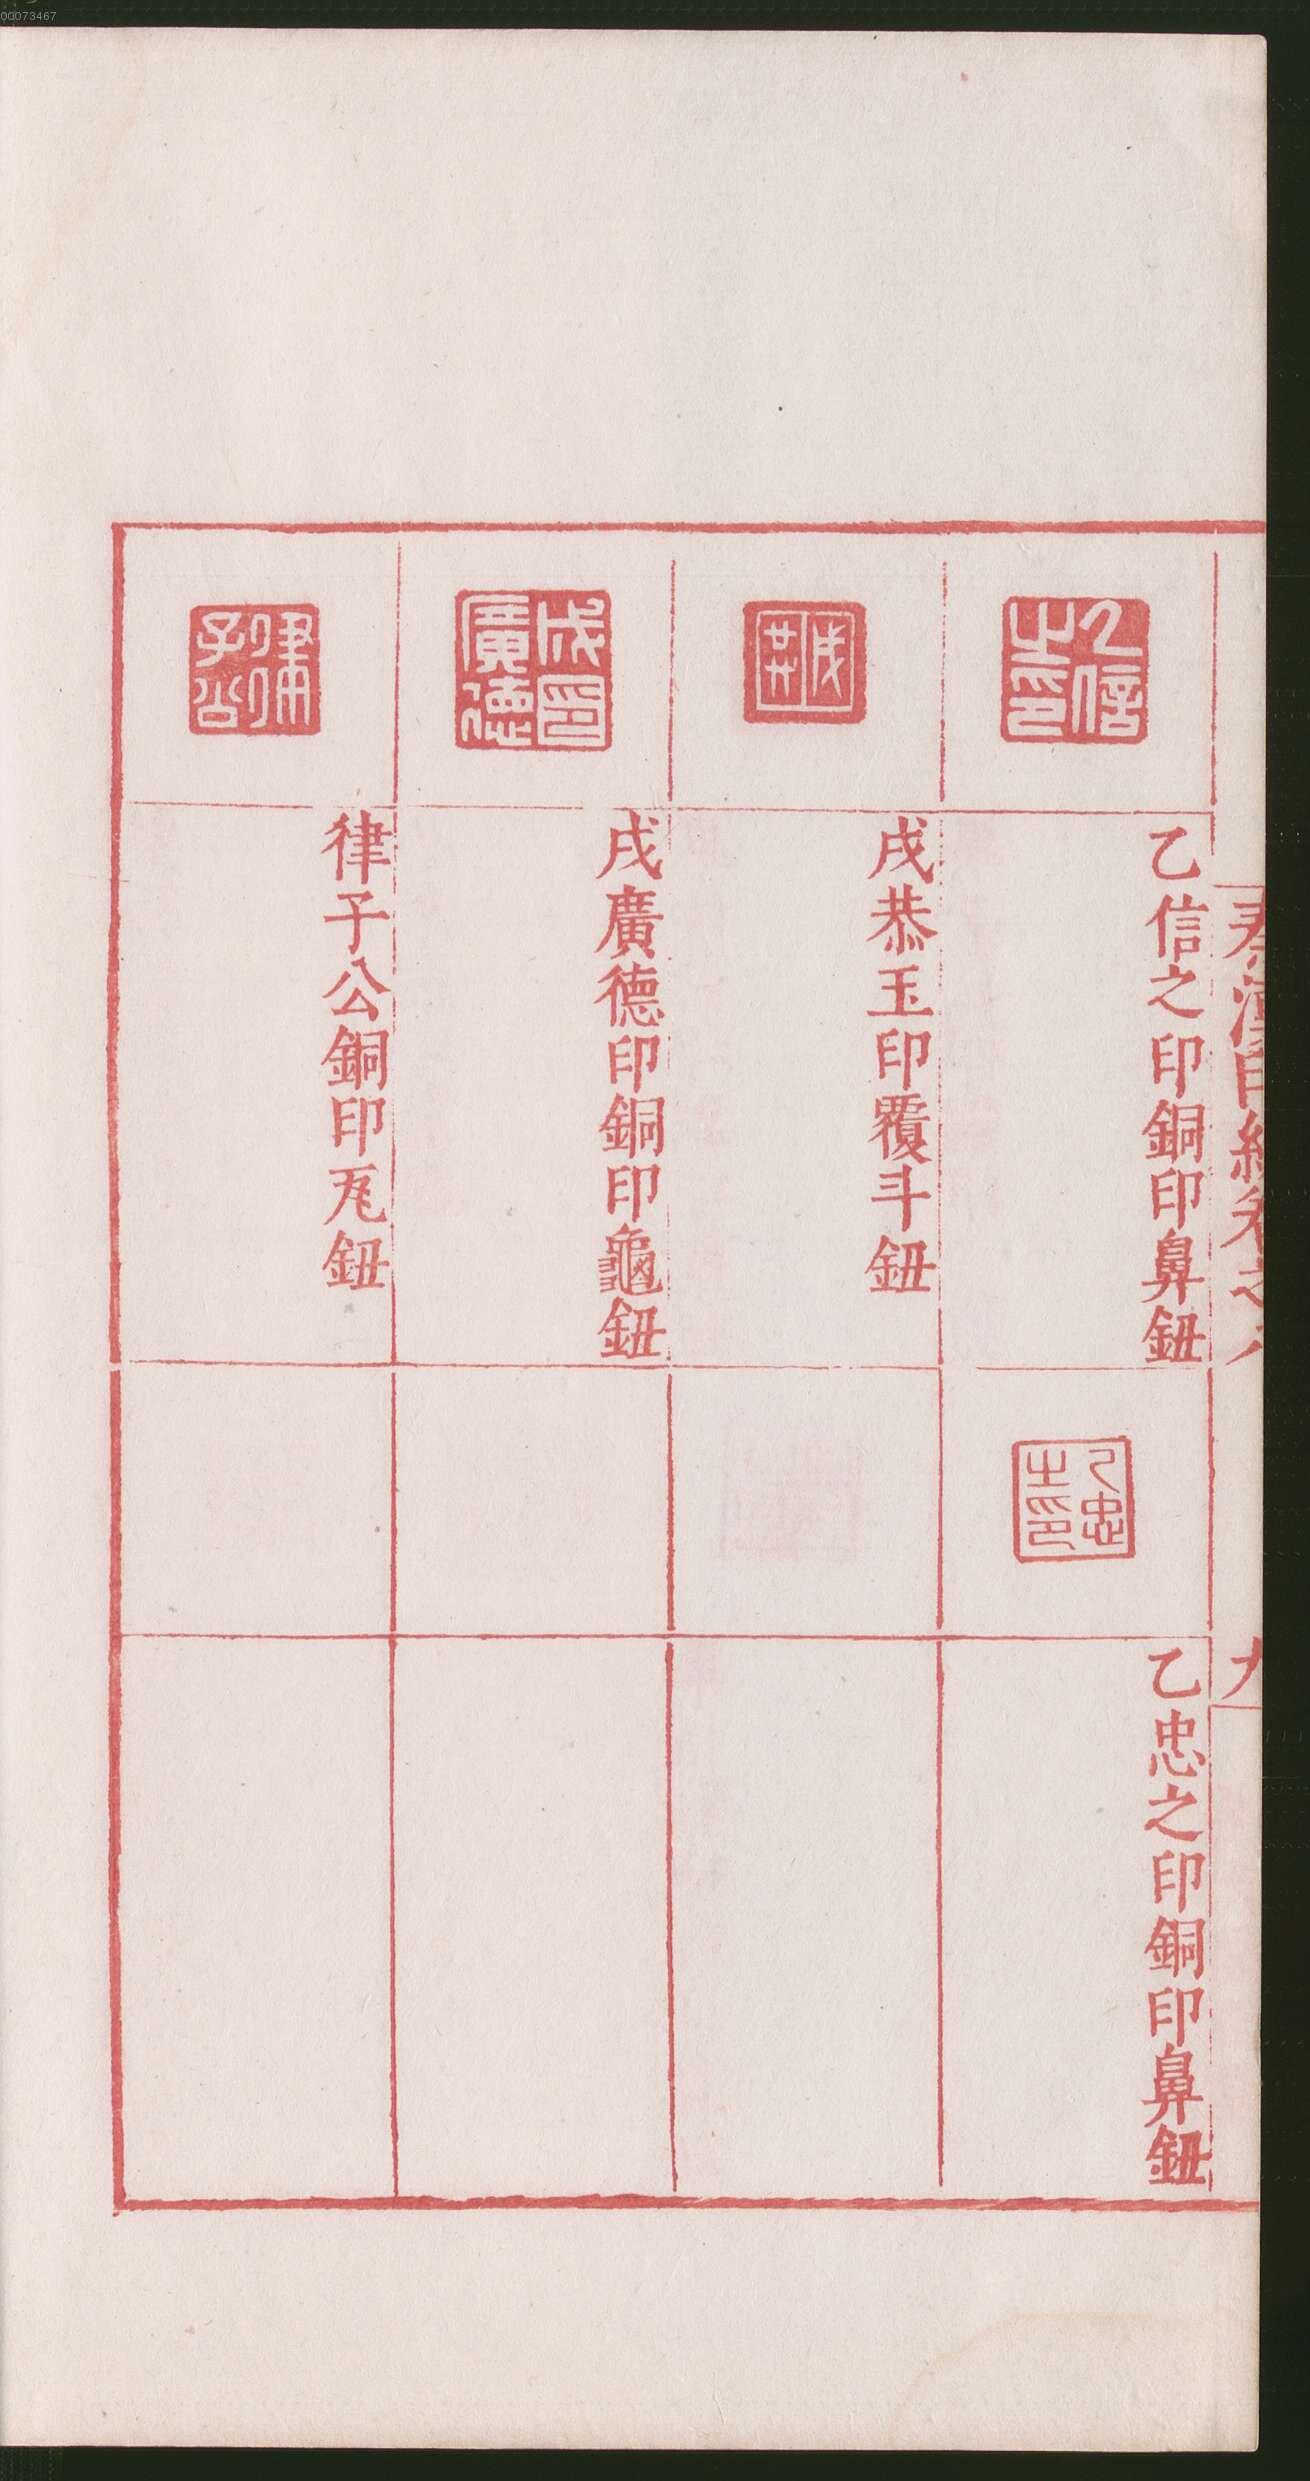 00073467
秦漢印統卷之八
九
乙信之印
乙信之印銅印鼻鈕
乙忠之印
乙忠之印銅印鼻鈕
戌恭
戌恭玉印覆斗鈕
戌印廣德
戌廣德印銅印龜鈕
律子公
律子公銅印瓦鈕